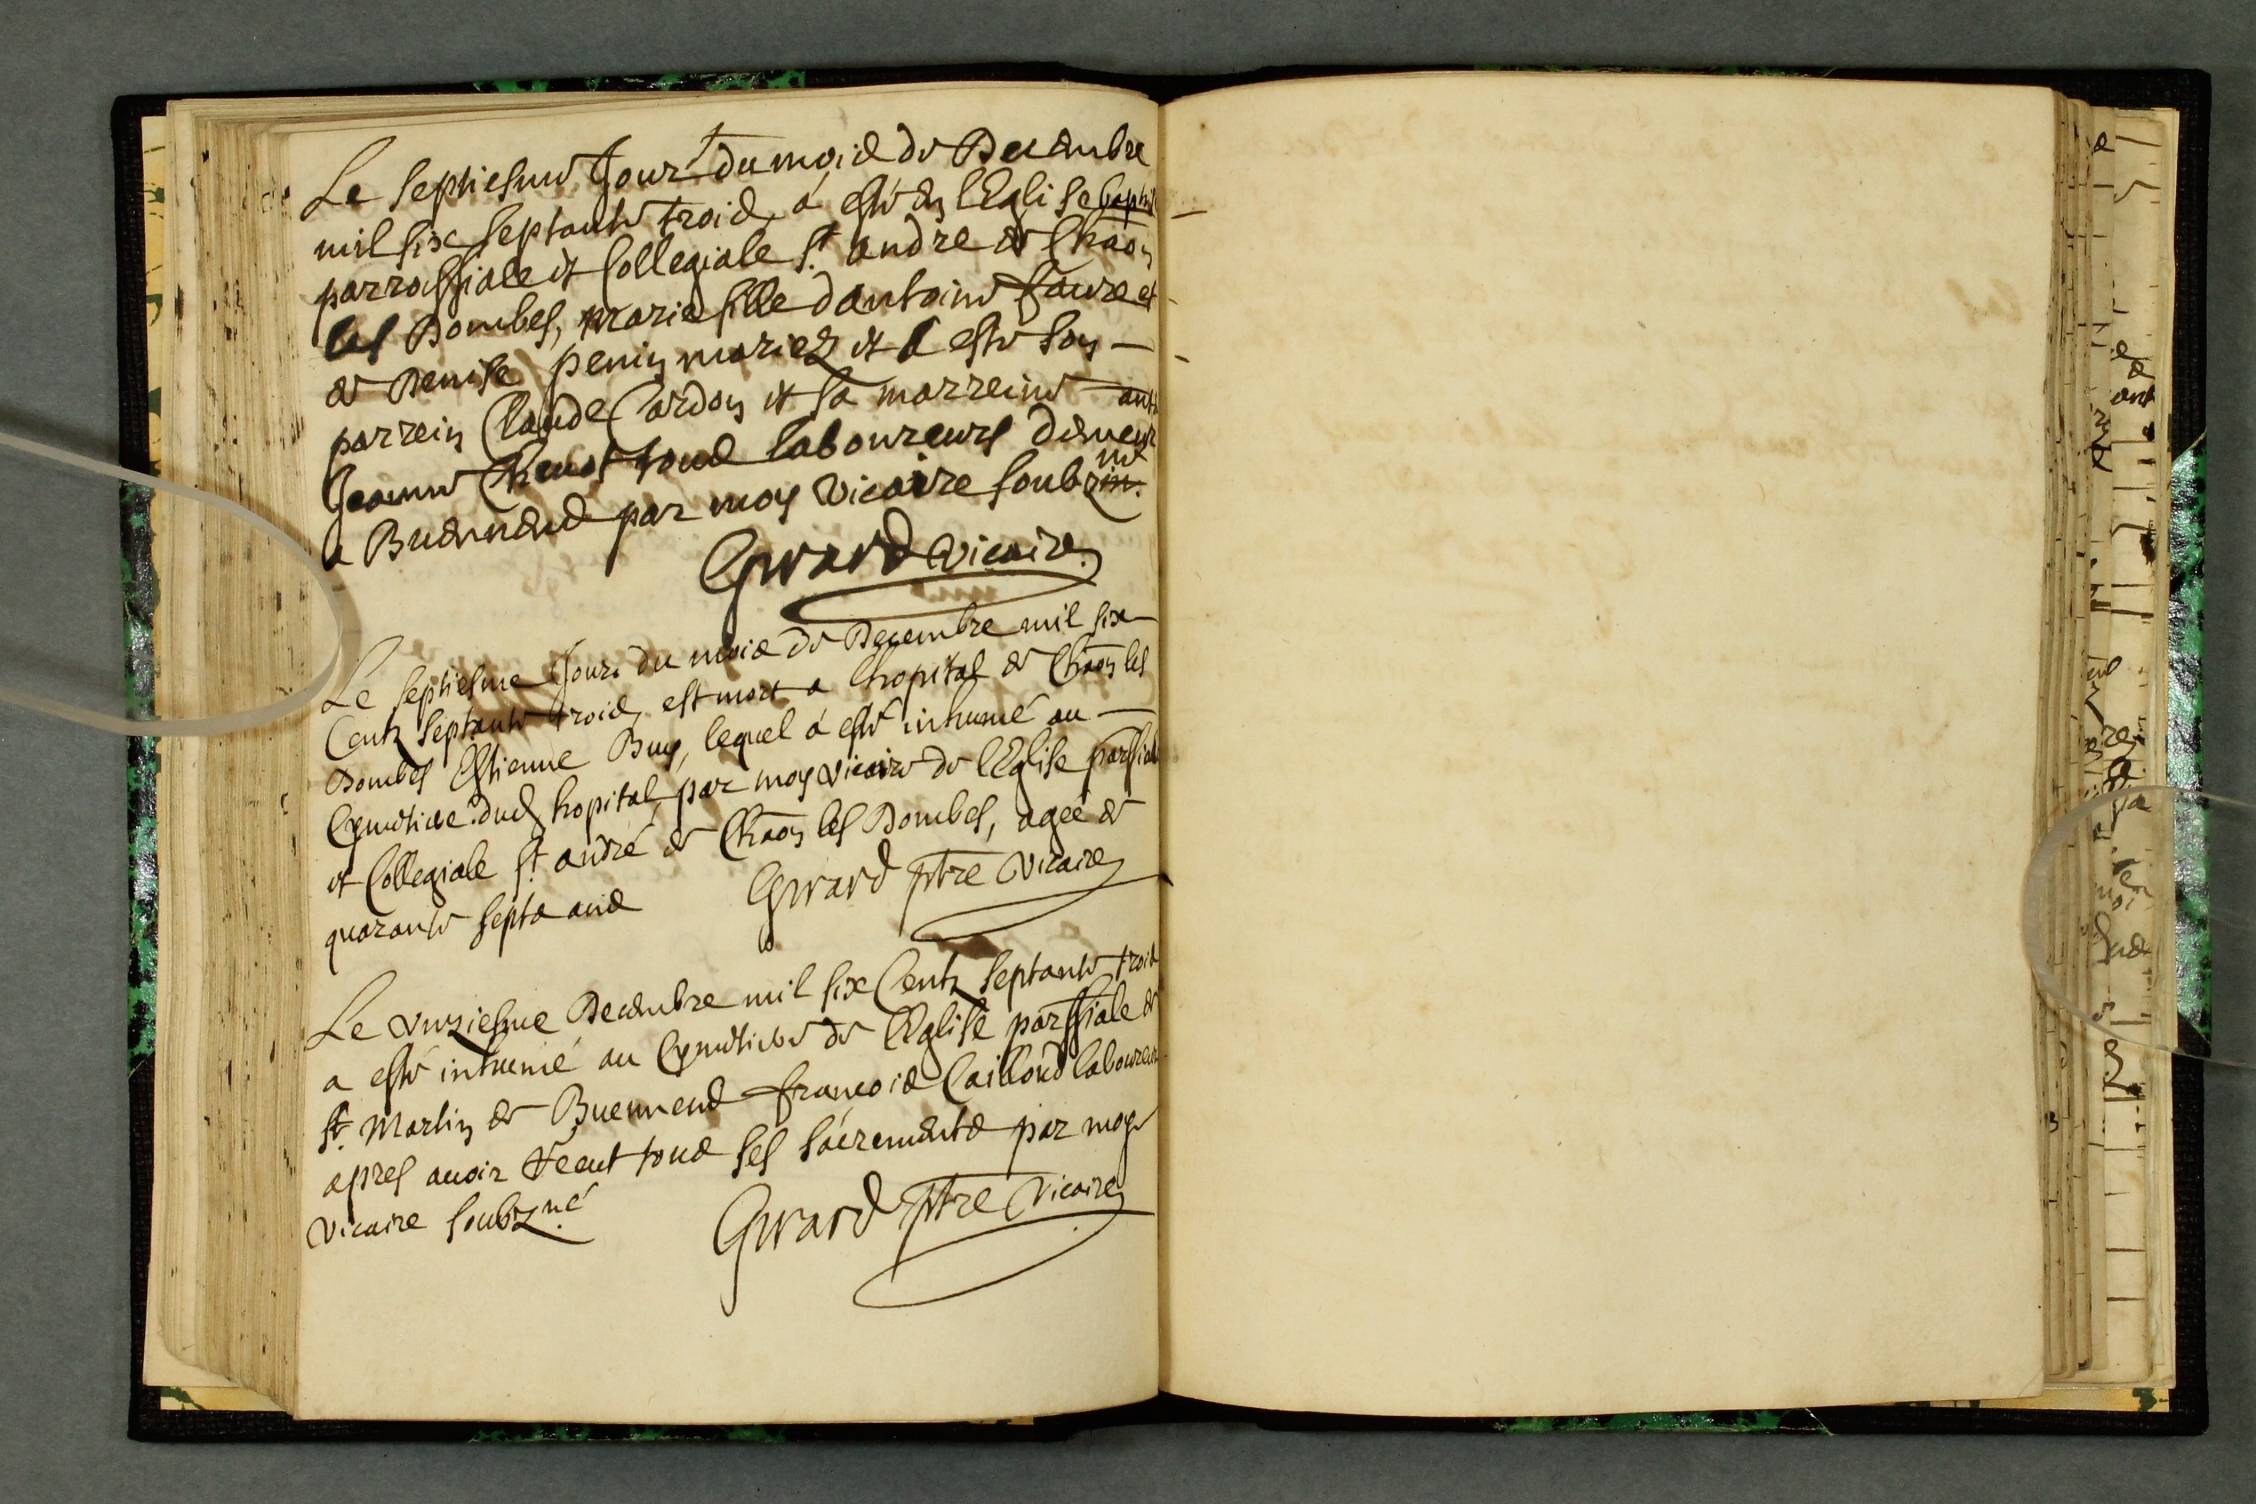 Le septiesme Jour du mois de Decembre
mil six septante trois, á esté en l'Eglise bapti
parrochiale et Collegiale St. andre de Chãon
les Dombes, marie fille dantoine faure et
de Denise penin mariez et a esté son —
parrein Claude Cardon et sa marreine —
Jeanne Chenot tous laboureurs demeur
a Buenend par moy vicaire soubz né
Girard vicaire
Le septiesme Jour du mois de Decembre mil six
Centz septante trois, est mort a lhopital de Chãon les
Dombes Estienne Buy, lequel á esté inhumé au —
Cymetiere dud hopital, par moy vicaire de l'Eglise parrssiale
et Collegiale St. andré de Chãon les Dombes, ageé de
quarante septs ans
Girard ptre vicaire
Le unziesme Decembre mil six Centz septante trois
a esté inhumé au Cymetiere de l'Eglise parssiale de
St. Martin de Buenend francois Cailloud laboureur
apres auoir receut tous ses sacrements par moy
vicaire soubzné
Girard ptre vicaire